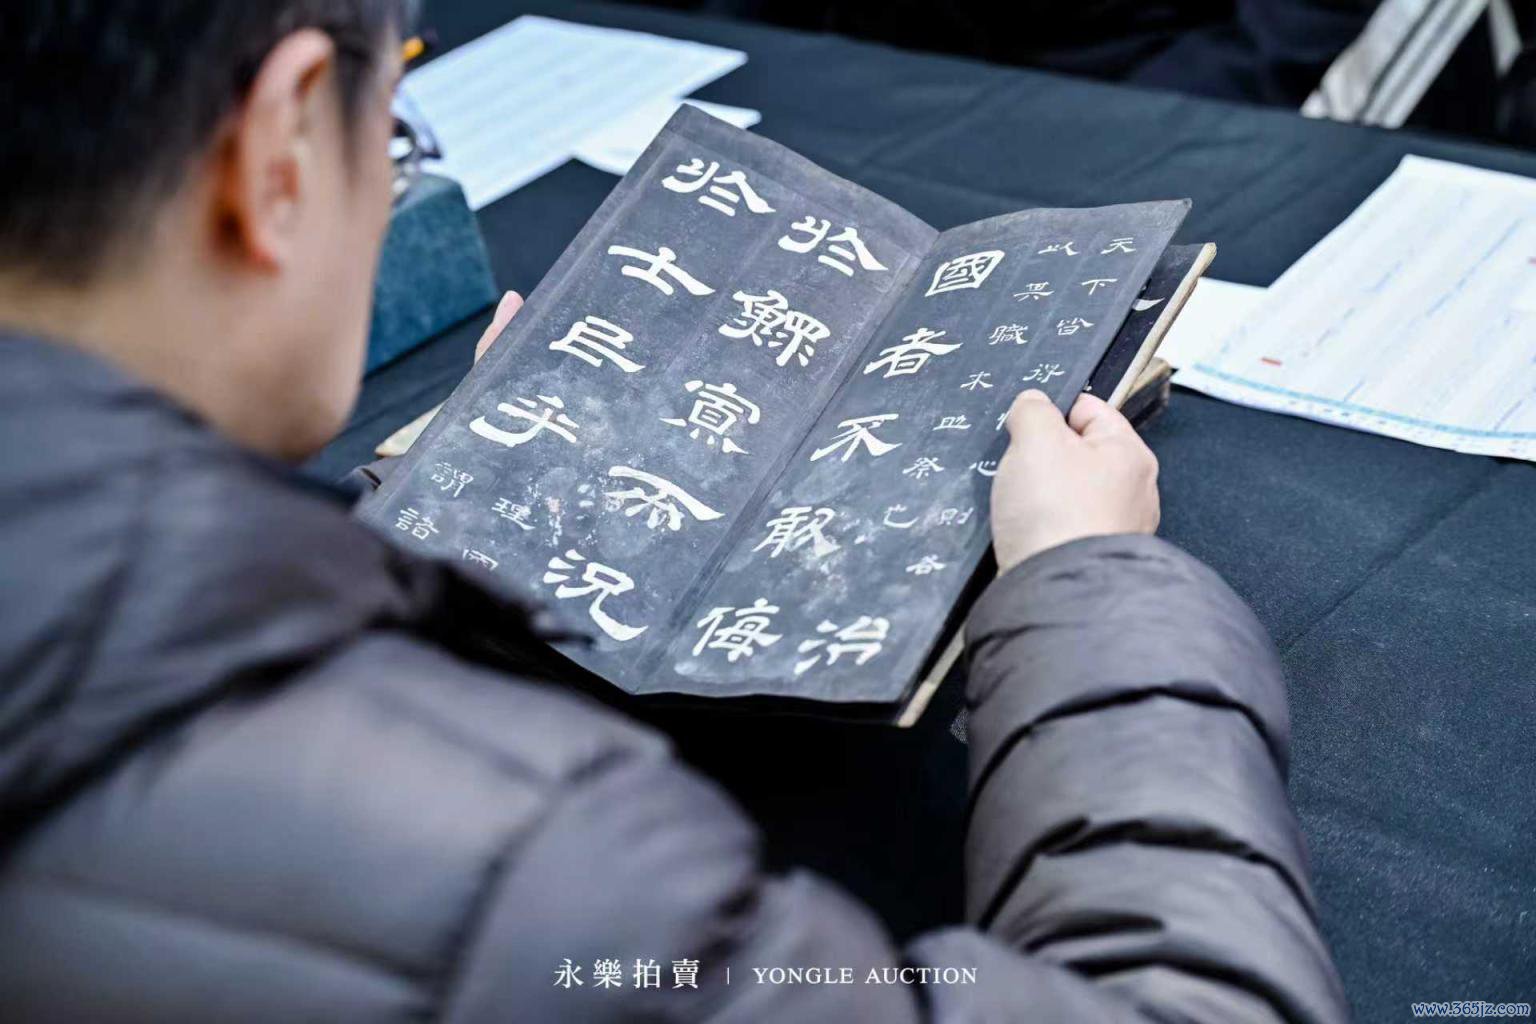 天下皆得心則各
以其職来助祭也
治
國者不敢侮
於鰥寡而況
於士民乎
理國
謂諸
永樂拍賣 | YONGLE AUCTION
www.365jz.com